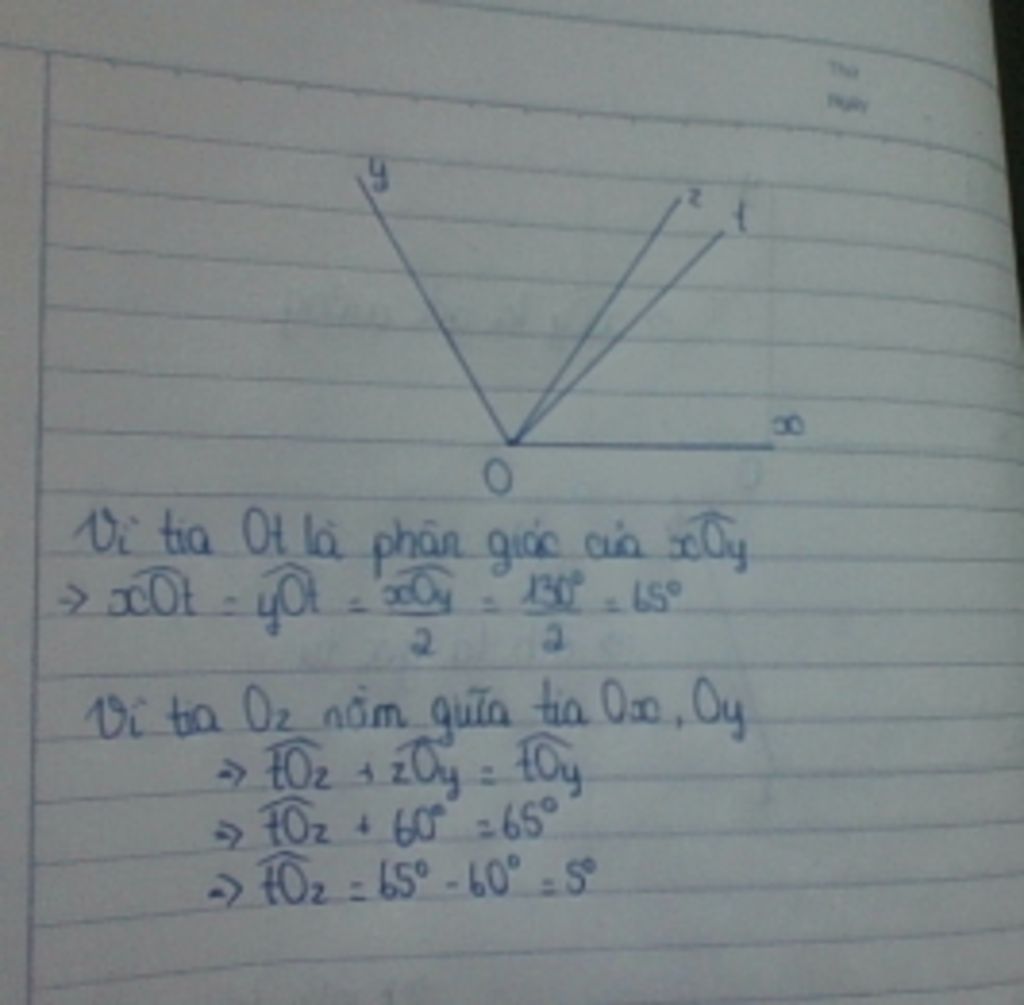 Thứ
Ngày
y
z
t
x
O
Vì tia Ot là phân giác của xOy
⇒ xOt = yOt = xOy/2 = 130°/2 = 65°
Vì tia Oz nằm giữa tia Ox, Oy
⇒ tOz + zOy = tOy
⇒ tOz + 60° = 65°
⇒ tOz = 65° - 60° = 5°